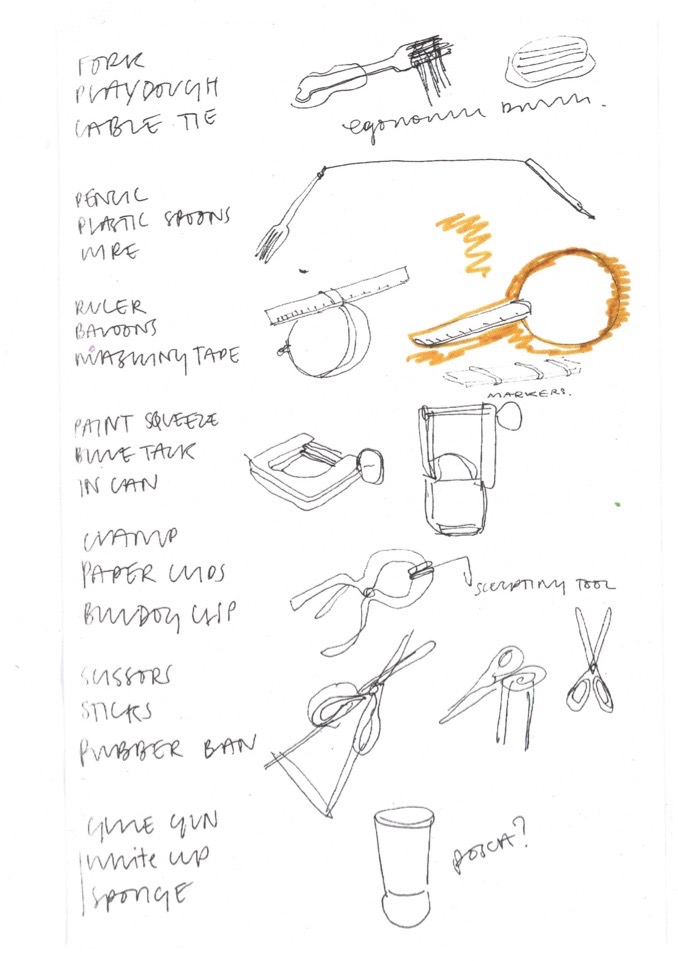 FORK
PLAYDOUGH
CABLE TIE
egonomic
PENCIL
PLASTIC SPOONS
WIRE
RULER
BALOONS
MASKING TAPE
MARKERS.
PAINT SQUEEZE
BLUE TACK
IN CAN
CLAMP
PAPER CLIPS
BULLDOG CLIP
SCULPTING TOOL
SCISSORS
STICKS
RUBBER BAN
GLUE GUN
White CUP
SPONGE
POSCA?